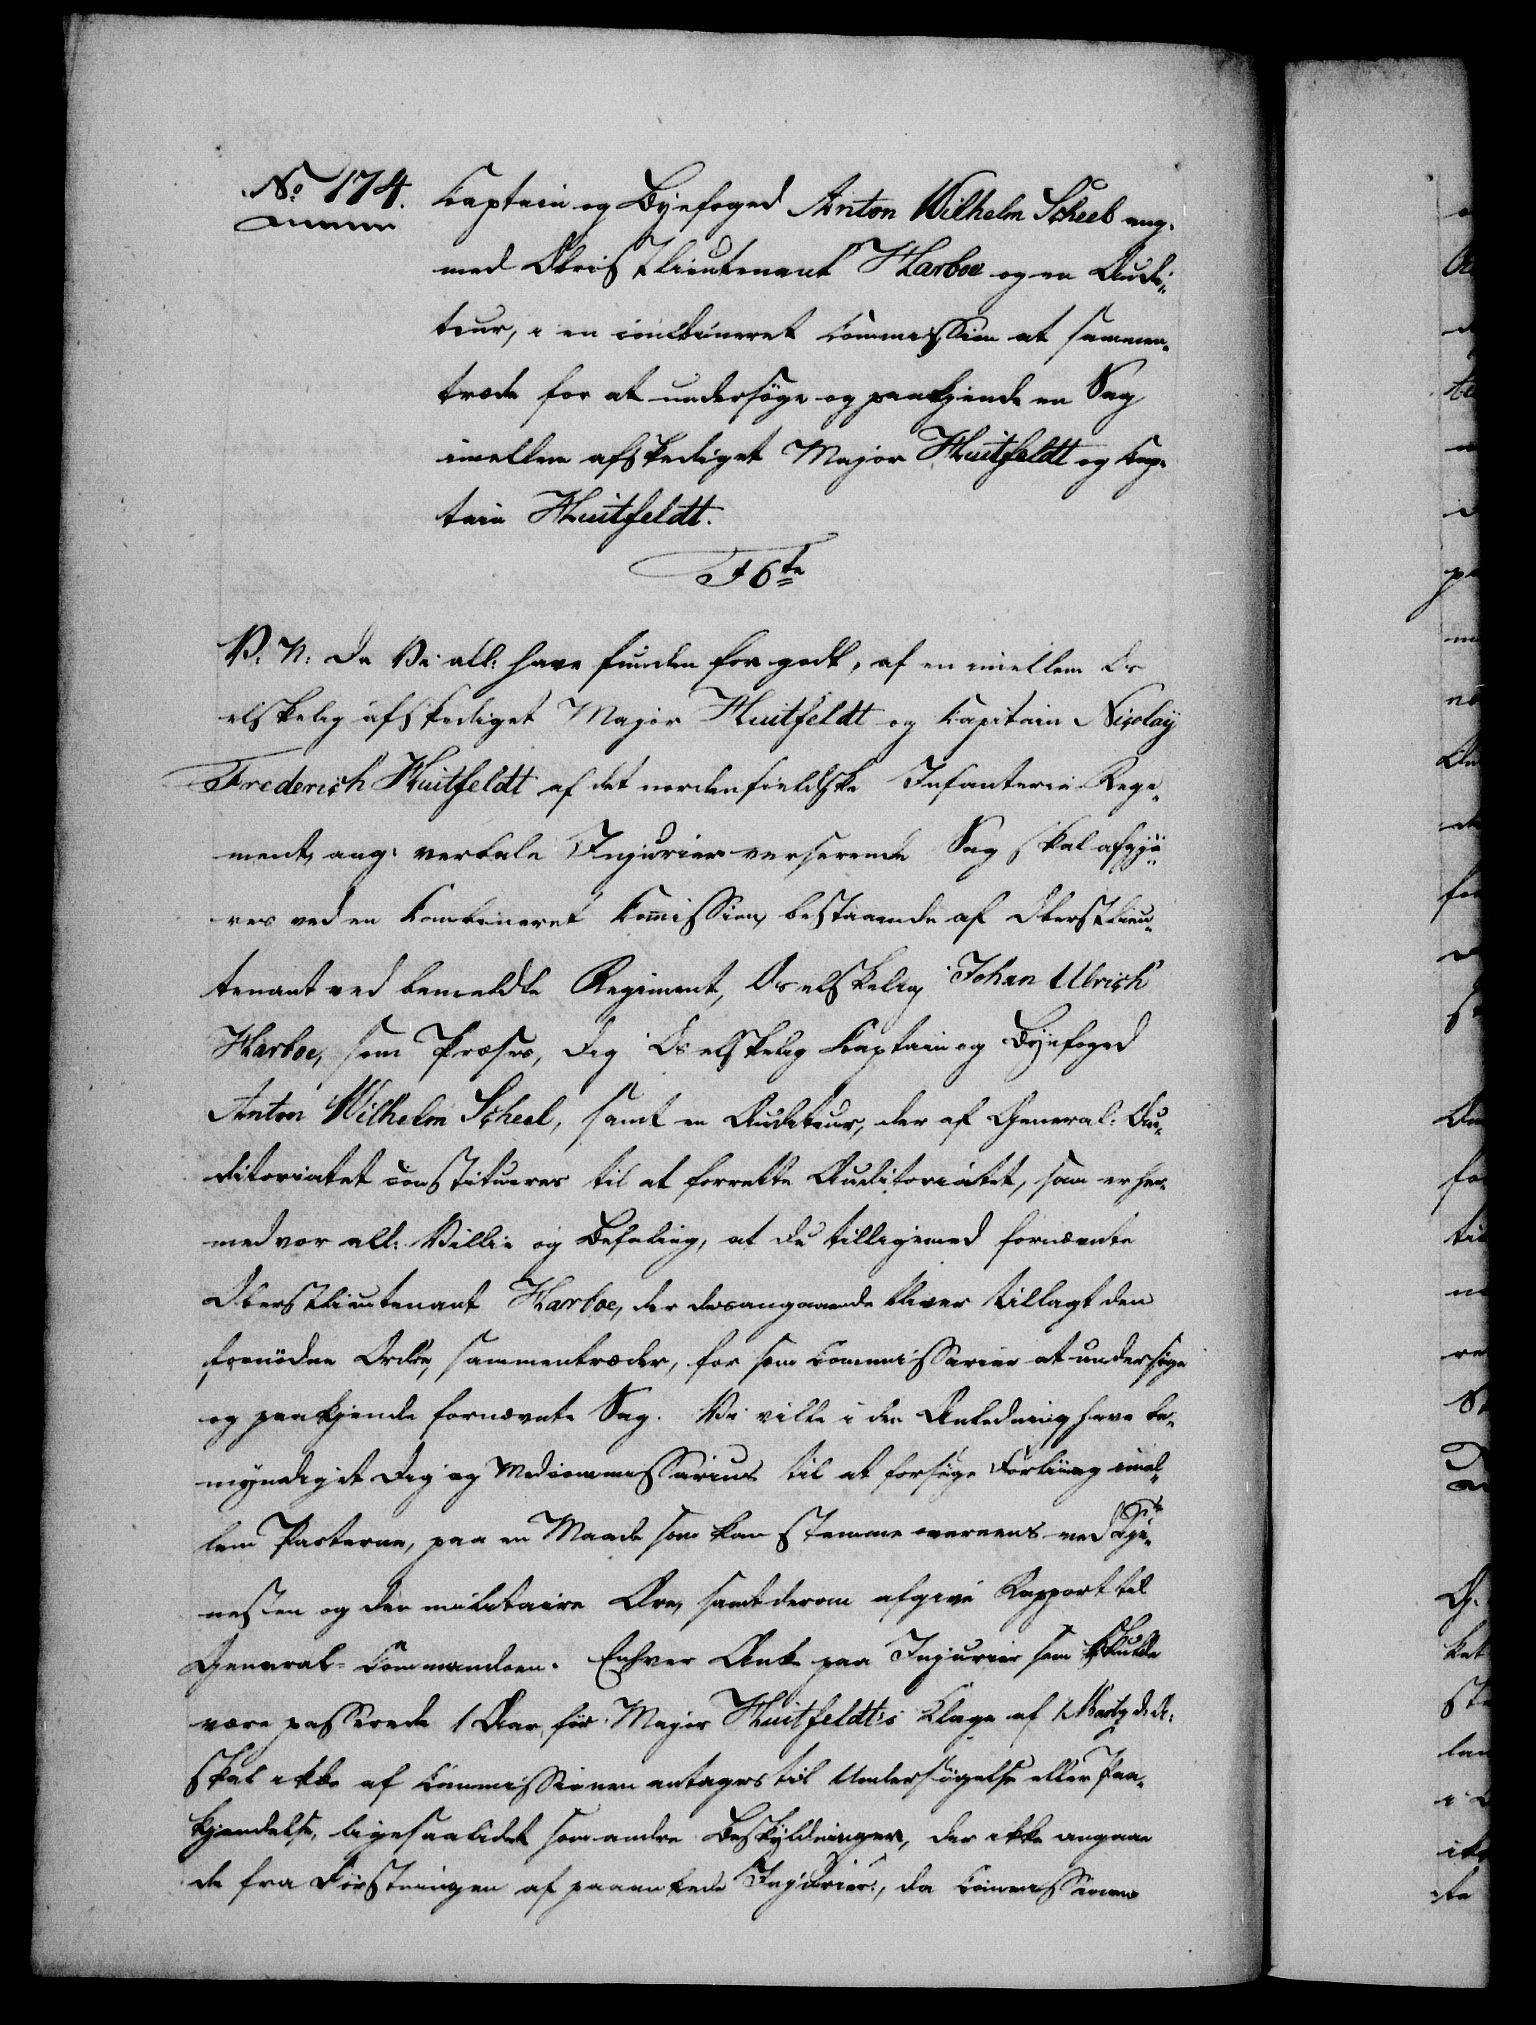 No 174. Captain og Byefoged Anton Wilhelm Scheel ang.
med Obristlieutenant Harboe og en Audi„
teur, i en combineret Commission at sammen„
træde for at undersöge og paakjende en Sag
imellem afskediget Major Huitfeldt og Cap„
tain Huitfeldt.
F 6te
V: N: Da Vi all: have funden for godt, at en imellem Os
elskelig afskediget Major Huitfeldt og Capitain Nicolaÿ
Frederich Huitfeldt af det nordenfieldske Infanterie Rege„
ment, ang: verbale Injurier verserende Sag skal afgjö„
res ved en Combineret Commission, bestaaende af Oberstlieu„
tenant ved bemeldte Regiment, Os elskelig Johan Ulrich
Harboe, som Præses, Dig Os elskelig Captain og Byefoged
Anton Wilhelm Scheel, samt en Auditeur, der af General-Au„
ditoriatet constitueres til at forrette Auditoriatet, saa er her„
med vor all: Villie og Befaling, at Du tilligemed fornævnte
Oberstlieutenant Harboe, der desangaaende bliver tillagt den
fornödne Ordre, sammentræder, for som Commissarier at undersöge
og paakjende fornævnte Sag. Vi ville i den Anledning have be„
myndiget Dig og Medcommissarius til at forsöge Forliig imel„
lem Parterne, paa en Maade som kan stemme overeens med
og den militaire Ære, samt derom afgive Rapport til
General-Commandoen. Enhver Anke paa Injurier som skulde
være passerede 1 Aar, för Major Huitfeldt's Klage af 1 d: A:
skal ikke af Commissionen antages til Undersögelse eller Paa„
kjendelse, ligesaalidet som andre Beskyldninger, der ikke angaae
de fra Förstningen af paaankede Injurier, da Commissionen